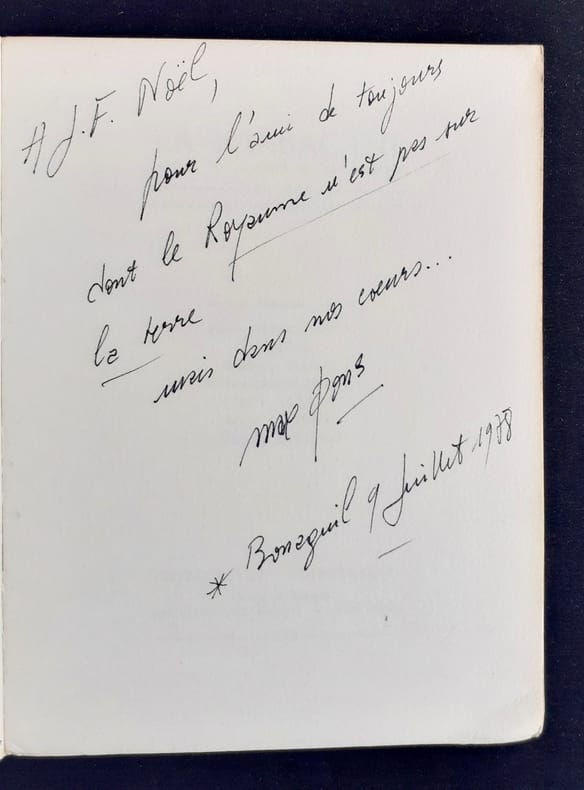 A J.F. Noël,
pour l'ami de toujours
dont le Royaume n'est pas sur
la terre
mais dans nos coeurs...
max pons
* Bonaguil 9 Juillet 1978